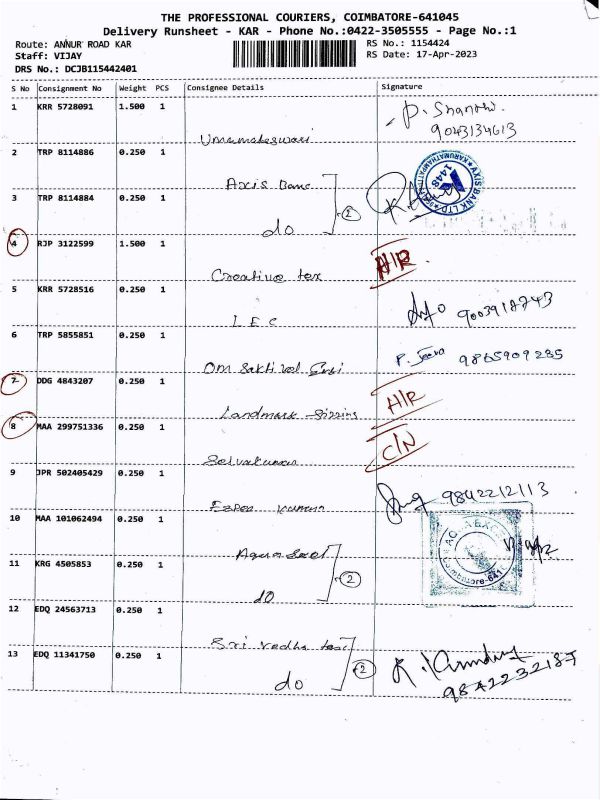 THE PROFESSIONAL COURIERS, COIMBATORE-641045
Delivery Runsheet - KAR - Phone No.:0422-3505555 - Page No.:1
Route: ANNUR ROAD KAR
Staff: VIJAY
DRS No.: DCJB115442401
RS No.: 1154424
RS Date: 17-Apr-2023
S No Consignment No Weight PCS Consignee Details Signature
1 KRR 5728091 1.500 1
P. Shanthi
9043134613
Umamaheswari
2 TRP 8114886 0.250 1
Axis Banc
AXIS BANK LTD
1448
3 TRP 8114884 0.250 1
do 2
4 RJP 3122599 1.500 1
H/R
Creative tex
5 KRR 5728516 0.250 1
LEC
9003918743
6 TRP 5855851 0.250 1
P. Jeeva 9865909285
Om Sakthi vel
7 DDG 4843207 0.250 1
H/R
Landmark
8 MAA 299751336 0.250 1
C/N
Selvakumar
9 JPR 502405429 0.250 1
9842212113
10 MAA 101062494 0.250 1
Coimbatore-641
11 KRG 4505853 0.250 1
do 2
12 EDQ 24563713 0.250 1
Sri vedha
13 EDQ 11341750 0.250 1
do 2
9842232187